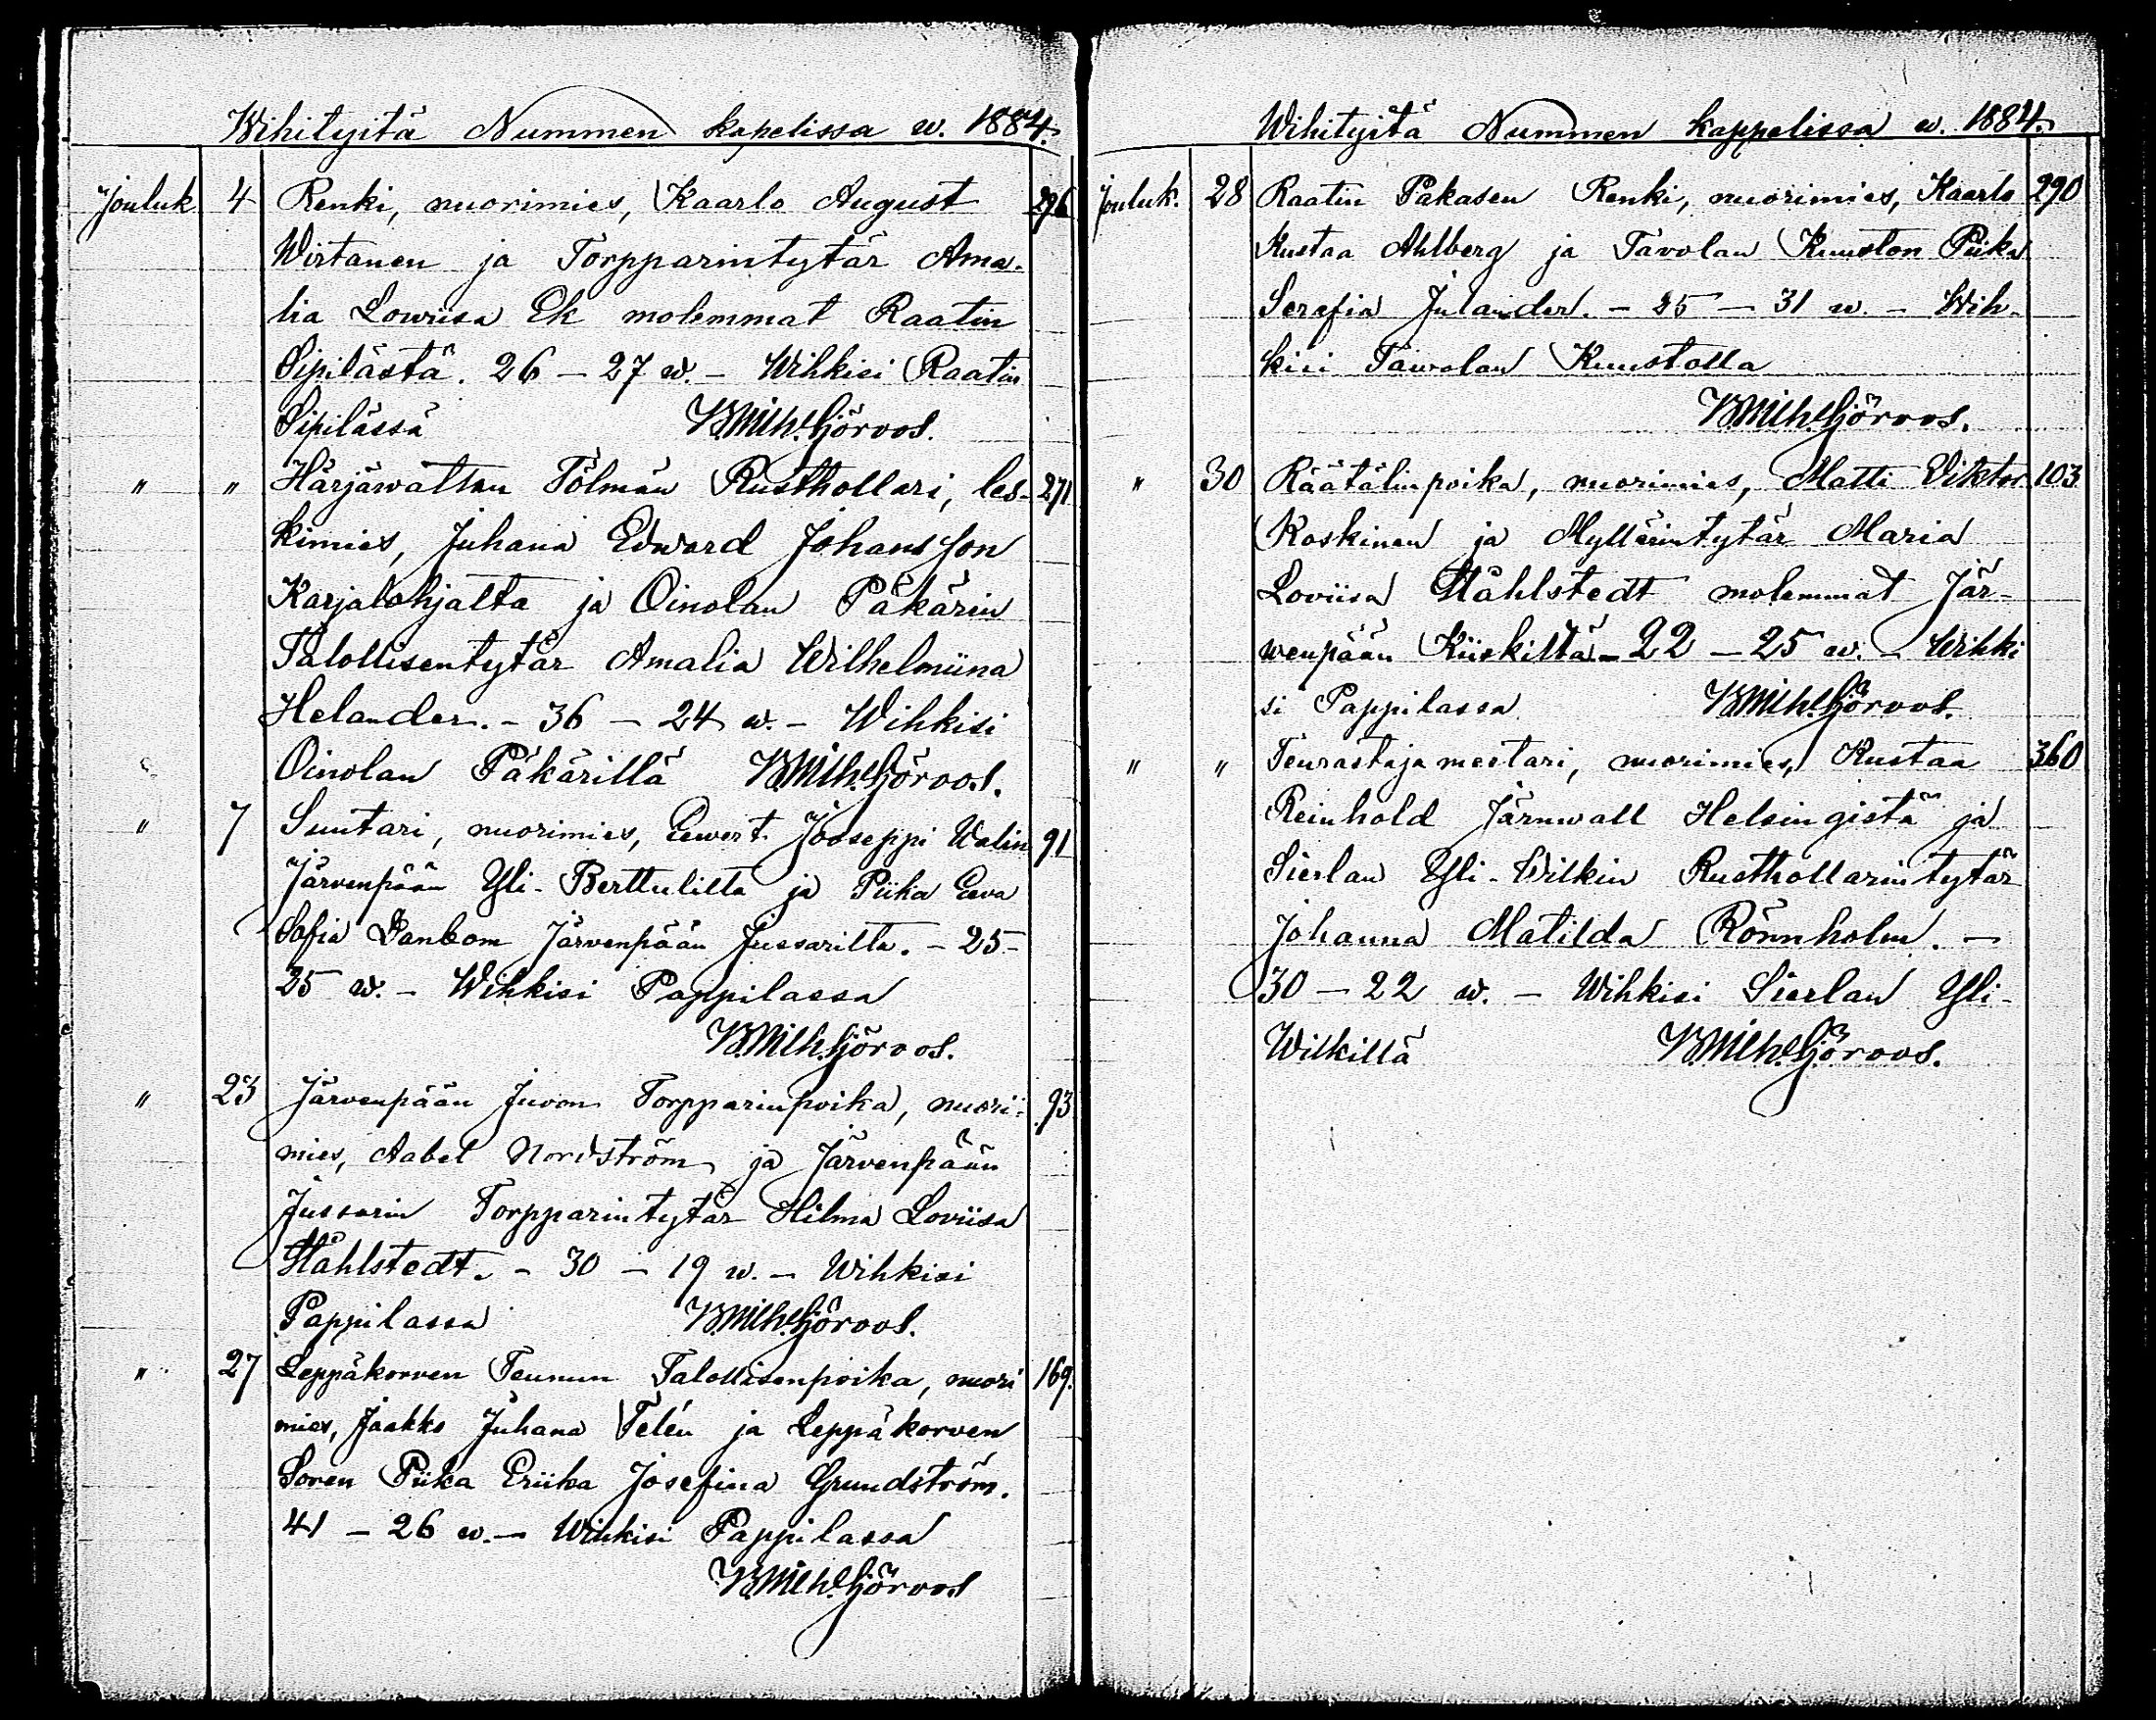 Wihityitä Nummen kapelissa w. 1884.
Jouluk 4 Renki, nuorimies, Kaarlo August 296
Wirtanen ja Torpparintytär Ama-
lia Lowiisa Ek molemmat Raatin
Sipilästä. 26 – 27 w. – Wihkisi Raatin
Sipilässä
" " Härjäwaltan Tölmän Rusthollari, les- 271
kimies, Juhana Edward Johansson
Karjalohjalta ja Oinolan Päkärin
Talollisentytär Amalia Wilhelmiina
Helander. – 36 – 24 w. – Wihkisi
Oinolan Päkärillä
" 7 Suutari, nuorimies, Eewert Jooseppi Walin 91
Järvenpään Yli-Berttulilta ja Piika Eeva
Sofia Järvenpään Jussarilta. – 25 –
25 w. – Wihkisi Pappilassa
" 23 Järvenpään Juvon Torpparinpoika, nuori- 93
mies, Aabel Nordström ja Järvenpään
Jussarin Torpparintytär Hilma Loviisa
Ståhlstedt. – 30 – 19 w. – Wihkisi
Pappilassa
" 27 Leppäkorven Teunun Talollisenpoika, nuori 169.
mies, Jaakko Juhana Telén ja Leppäkorven
Soren Piika Eriika Josefina Grundström.
41 – 26 w. – Wihkisi Pappilassa
Wihityitä Nummen kappelissa w. 1884.
Jouluk. 28 Raatin Pakasen Renki, nuorimies, Kaarlo 290
Kustaa Ahlberg ja Tavolan Kuuston Piika
Serafia Julander. – 25 – 31 w. – Wih-
kisi Tawolan Kuustolla
" 30 Räätälinpoika, nuorimies, Matti Viktor 103
Koskinen ja Myllärintytär Maria
Loviisa Ståhlstedt molemmat Jär-
wenpään Kiiskiltä – 22 – 25 w. – Wihki
si Pappilassa
" " Teurastajamestari, nuorimies, Kustaa 360
Reinhold Järnwall Helsingistä ja
Sierlan Yli-Wilkin Rusthollarintytär
Johanna Matilda Rönnholm. –
30 – 22 w. – Wihkisi Sierlan Yli-
Wilkillä